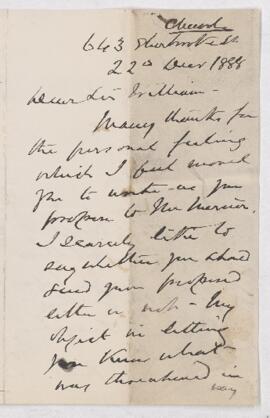 643 Sherbrooke St
22d Decr 1888
Dear Sir William -
Many thanks for
the personal feeling
which I feel moved
you to write as you
propose to Mr Mercier.
I scarcely like to
say whether you should
send your proposed
letter or not - My
object in letting
you know what
was threatened in